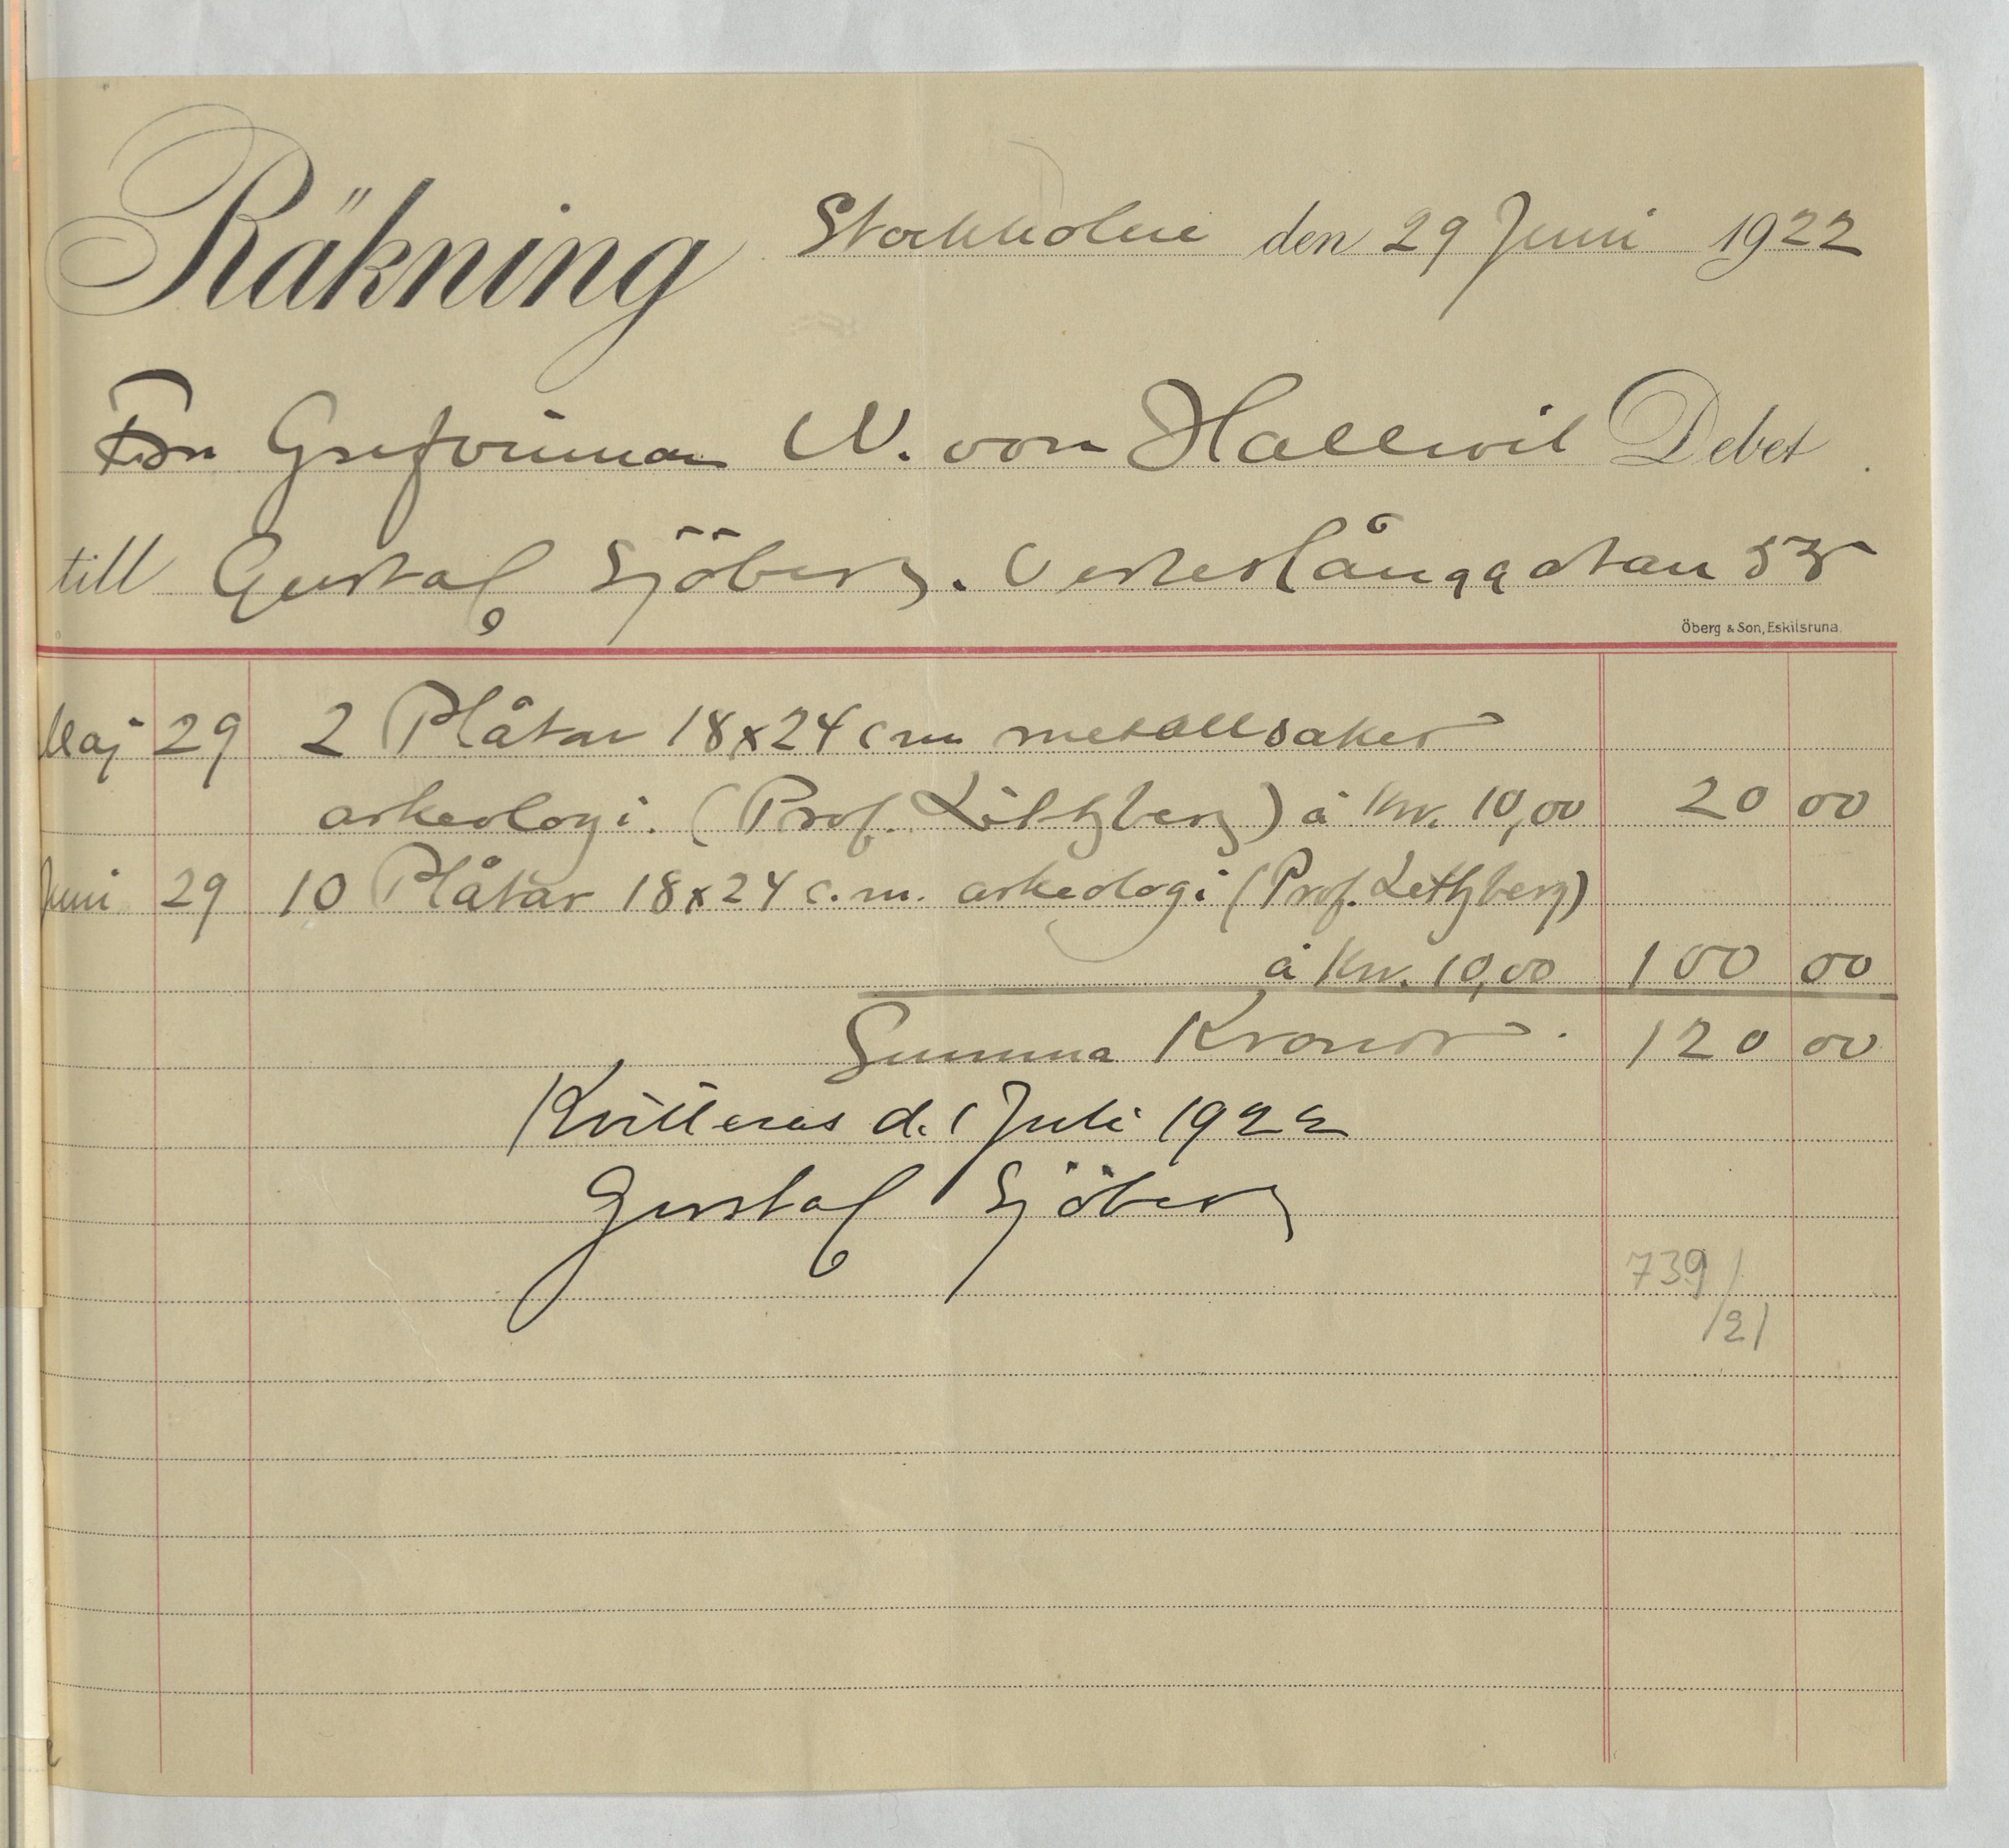 Räkning Stockholm den 29 Juni 1922
Fru Grefvinnan W. von Hallwil Debet
till Gustaf Sjöberg. Vesterlånggatan 55
Öberg & Son, Eskilstuna.
Maj 29 2 Plåtar 18x24 cm metallsaker
arkeologi. (Prof. Lithberg) à Kr. 10,00 20 00
Juni 29 10 Plåtar 18x24 c.m. arkeologi (Prof. Lethberg)
à Kr. 10,00 100 00
Summa Kronor. 120 00
Kvitteras d. 1 Juli 1922
Gustaf Sjöberg
739/
/21